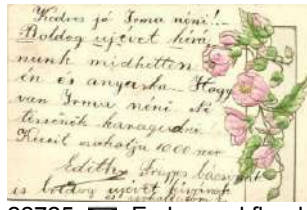 Kedves jó Irma néni!—
Boldog ujévet kívá
nunk midhetten
én és anyuska. Hogy
van Irma néni Ne
tessenek haragudni
Kezeit csókolja 1000 szer
Edith Frigyes bácsinak
is boldog ujévet kívánok